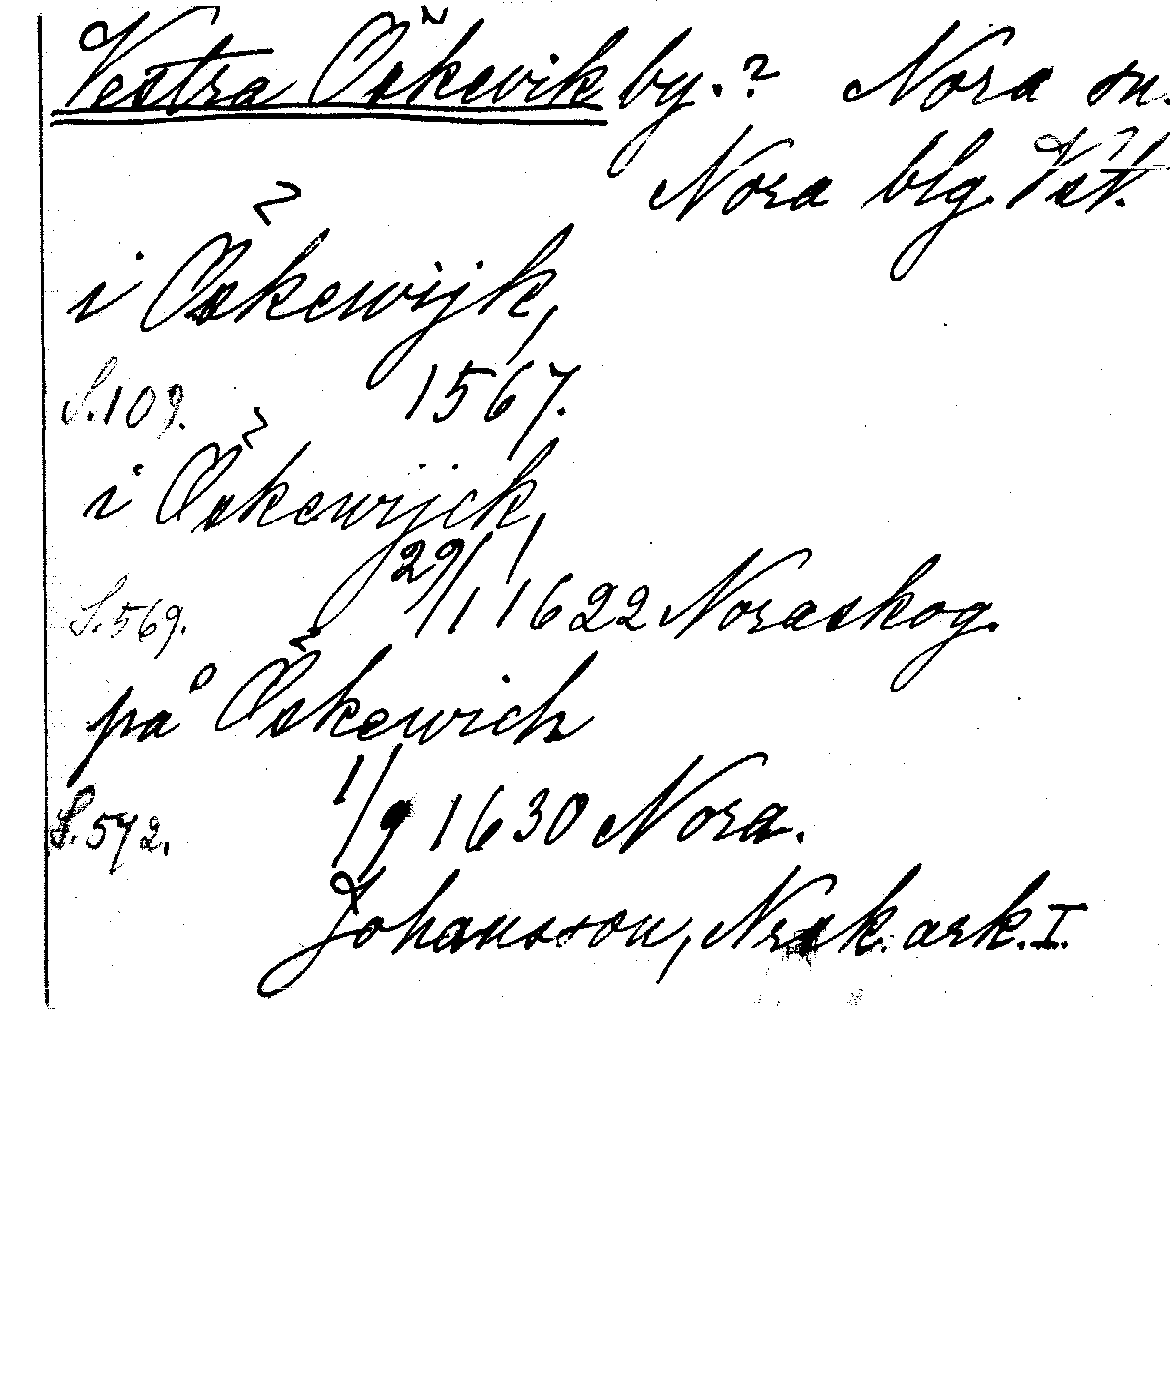 Vestra Öskevik by.? Nora sn.
Nora blg. Vstl.
i Öskewijk,
S.109. 1567.
i Öskewijck,
S.569. 29/1 1622 Noraskog.
på Öskewich
S.572. 1/9 1630 Nora.
Johansson, Nrsk. ark. I.